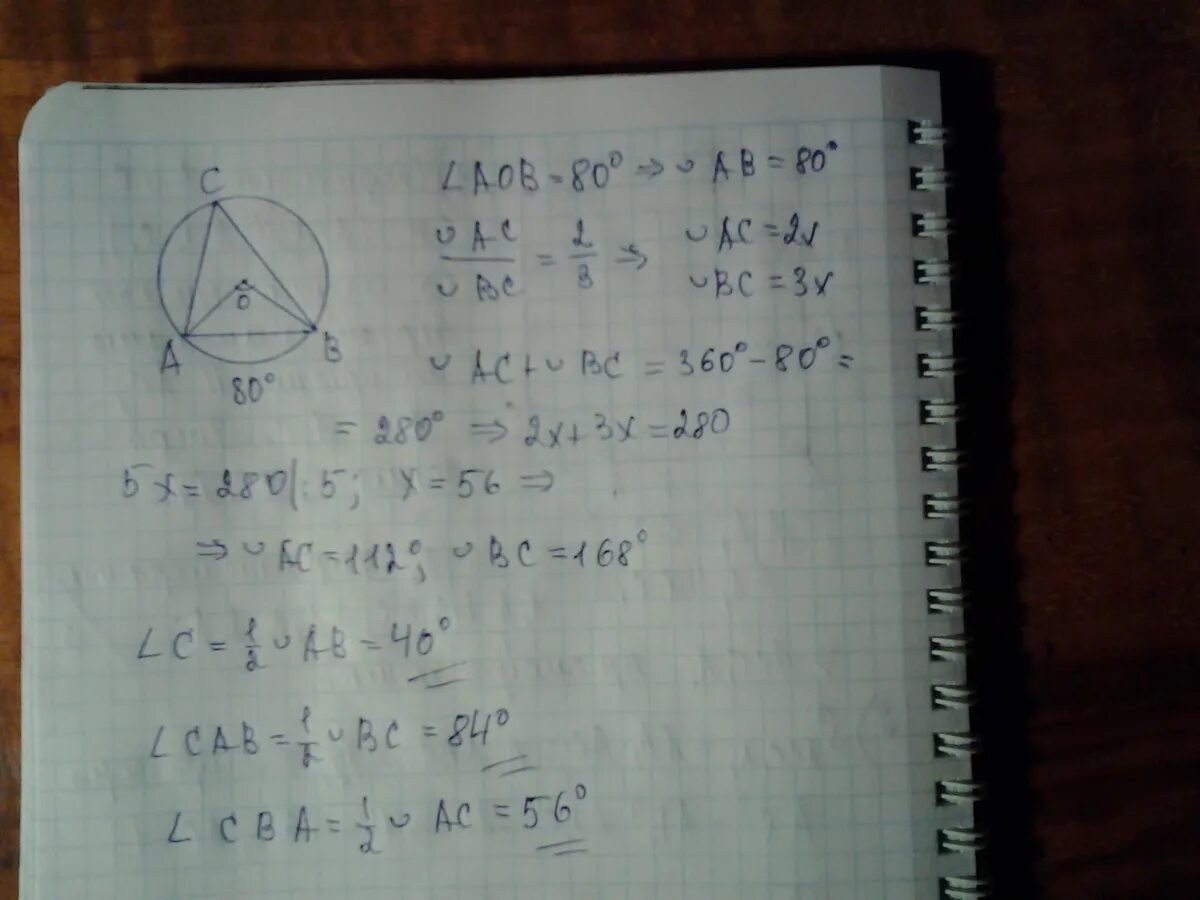 C
O
A
B
80°
∠AOB = 80° ⇒ ◡ AB = 80°
◡ AC / ◡ BC = 2/3 ⇒ ◡ AC = 2x
◡ BC = 3x
◡ AC + ◡ BC = 360° - 80° =
= 280° ⇒ 2x + 3x = 280
5x = 280 |: 5; x = 56 ⇒
⇒ ◡ AC = 112°; ◡ BC = 168°
∠C = 1/2 ◡ AB = 40°
∠CAB = 1/2 ◡ BC = 84°
∠CBA = 1/2 ◡ AC = 56°